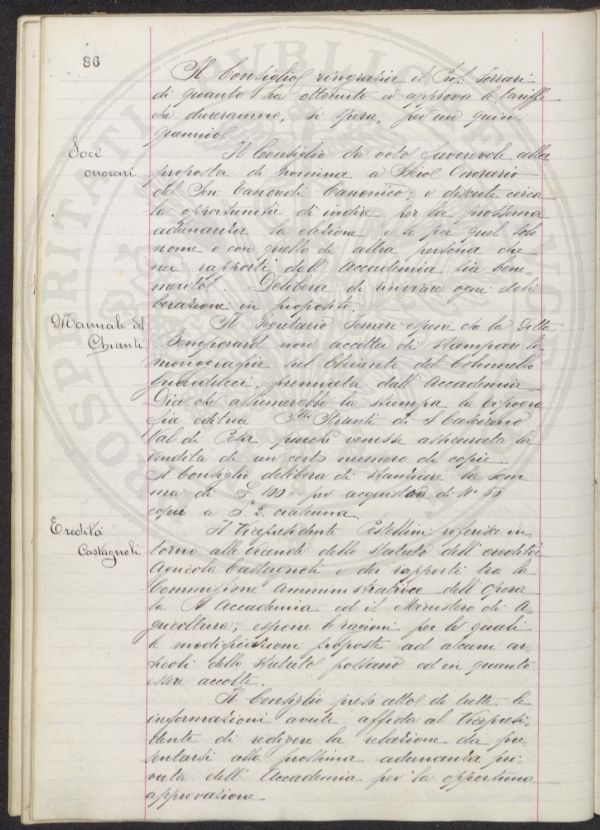 86
Il Consiglio ringrazia il Prof. Ferrari
di quanto ha ottenuto ed approva le tariffe
che dureranno, si spera, per un quin-
quennio.
Soci
onorari
Il Consiglio dà voto favorevole alla
proposta di nomina a Socio Onorario
del Sen: Canevaro Canonico; e discute circa
la opportunità di indire per la prossima
adunanza la elezione o se per quel solo
nome o con quello di altra persona che
nei rapporti dell'Accademia sia bene
merito. Delibera di rinviare ogni deli
berazione in proposito.
Manuale del
Chianti
Il Segretario espone che la Ditta
non accetta di stampare la
monografia sul Chianti del Colonnello
premiata dall'Accademia.
Dice che assumerebbe la stampa la tipogra
fia editrice Stianti di S. Casciano
Val di Pesa purché venisse assicurata la
vendita di un certo numero di copie.
Il Consiglio delibera di stanziare la som
ma di £ 100 per acquisto di N° 50
copie a £ 2. ciascuna.
Eredità
Castagnoli
Il Vicepresidente Pestellini riferisce in-
torno alle vicende dello Statuto dell'eredità
Agricola Castagnoli e dei rapporti tra la
Commissione Amministratrice dell'Opera
la R. Accademia ed il Ministero di A-
gricoltura; espone le ragioni per le quali
le modificazioni proposte ad alcuni ar-
ticoli dello Statuto possano ed in quanto
essere accolte.
Il Consiglio preso atto di tutte le
informazioni avute affida al Vicepresi
dente di redigere la relazione da pre-
sentarsi alla prossima adunanza pri-
vata dell'Accademia per la opportuna
approvazione.